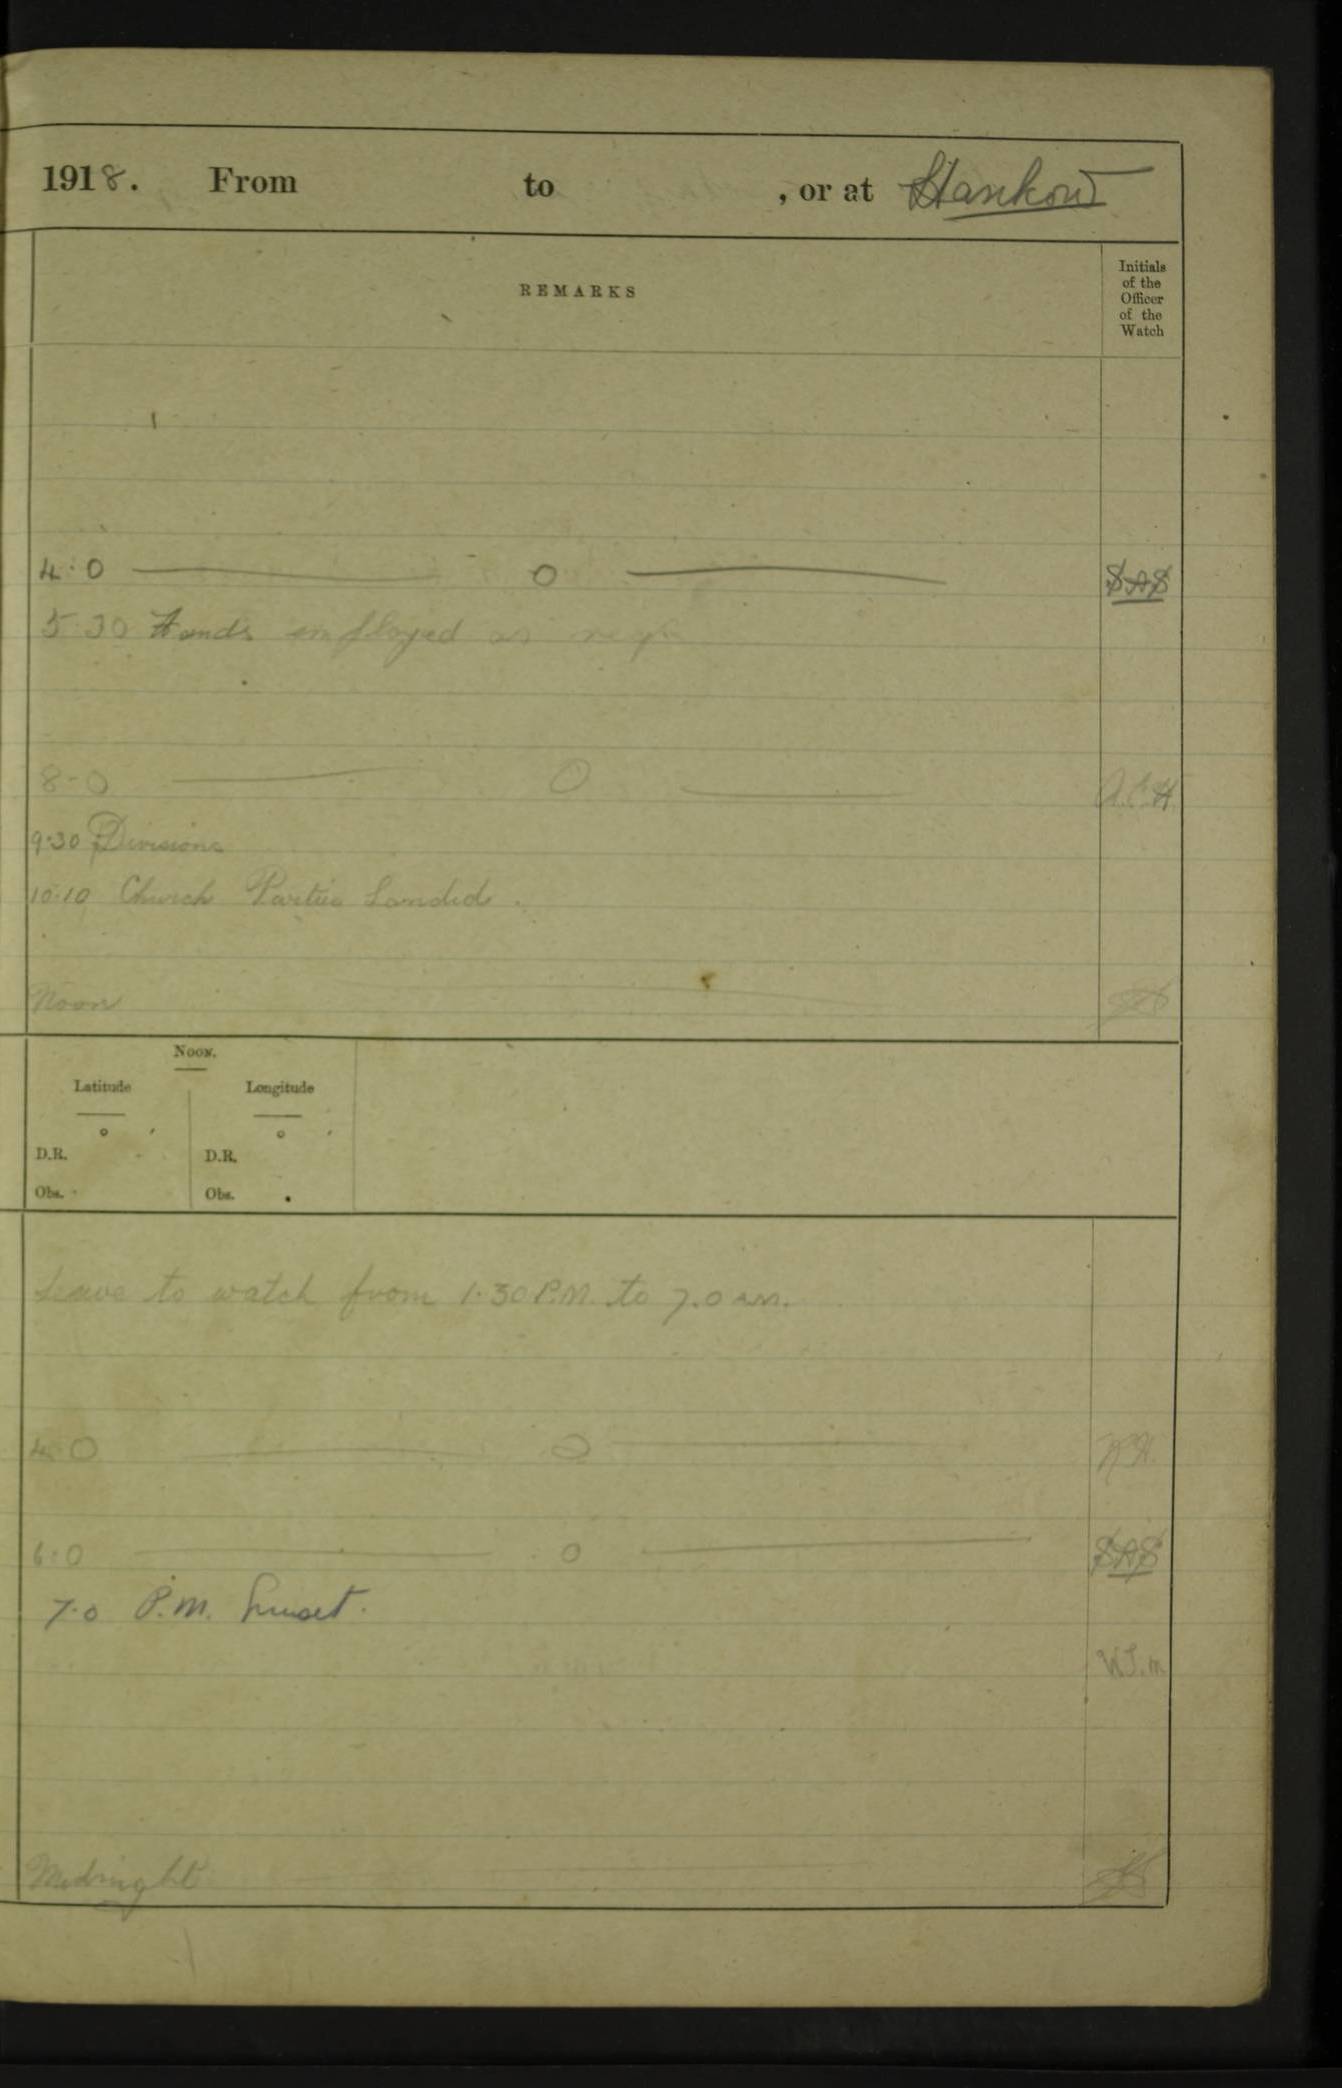 1918. From to , or at Hankow
REMARKS
Initials
of the
Officer
of the
Watch
4:0 — O — SAS
5.30 Hands employed as req
8-0 — O — A.C.H.
9.30 Divisions
10.10 Church Parties Landed.
Noon
NOON.
Latitude Longitude
° ′ ° ′
D.R. D.R.
Obs. Obs.
Leave to watch from 1.30 P.M. to 7.0 AM.
4.0 — O —
6:0 — O — SAS
7.0 P.M. Sunset.
W.J.M
Midnight